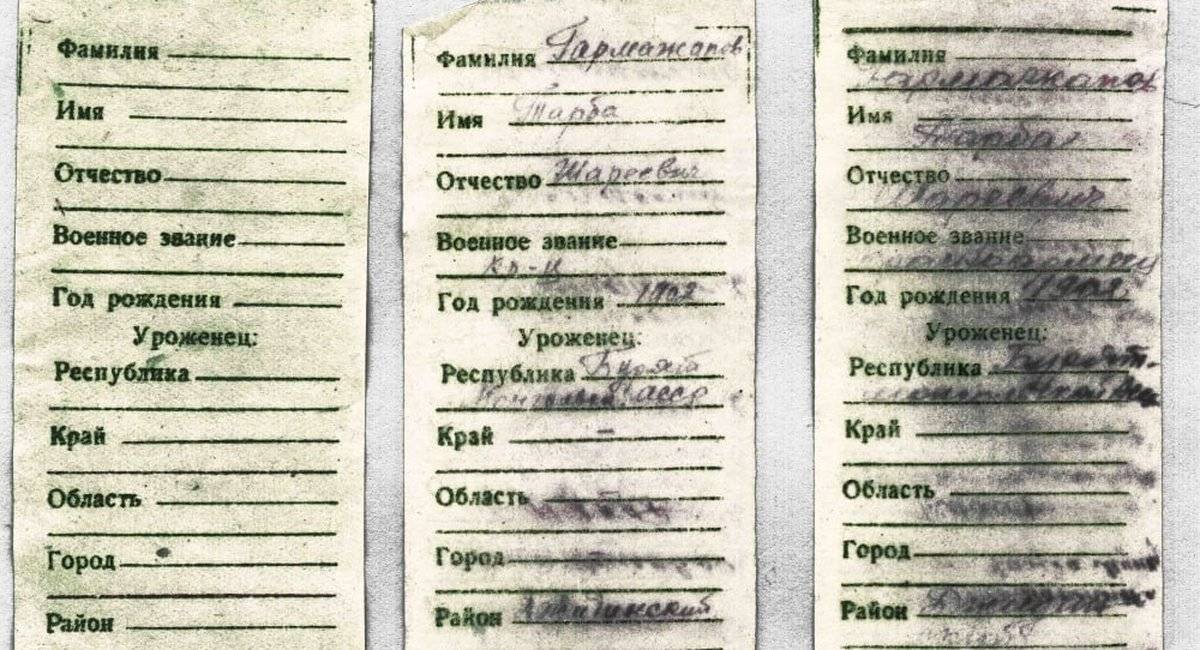 Фамилия
Имя
Отчество
Военное звание
Год рождения
Уроженец:
Республика
Край
Область
Город
Район
Фамилия Гармажапов
Имя Гарба
Отчество Шареевич
Военное звание
кр-ц
Год рождения 1902
Уроженец:
Республика Бурят
Монгольск АССР
Край –
Область
Город
Район Джидинский
Фамилия
Гармажапов
Имя
Гарба
Отчество
Шареевич
Военное звание
Год рождения 1902
Уроженец:
Республика Бурят-
Край
Область
Город
Район